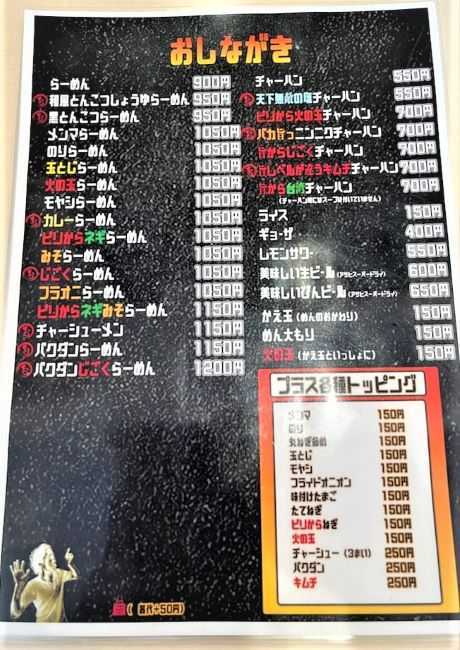 おしながき
らーめん 900円
和風とんこつしょうゆらーめん 950円
黒とんこつらーめん 950円
メンマらーめん 1050円
のりらーめん 1050円
玉とじらーめん 1050円
火の玉らーめん 1050円
モヤシらーめん 1050円
カレーらーめん 1050円
ピリからネギらーめん 1050円
みそらーめん 1050円
じごくらーめん 1050円
フラオニらーめん 1050円
ピリからネギみそらーめん 1150円
チャーシューメン 1150円
バクダンらーめん 1150円
バクダンじごくらーめん 1200円
チャーハン 550円
天下無敵の塩チャーハン 550円
ピリから火の玉チャーハン 700円
バカ汁っニンニクチャーハン 700円
からじごくチャーハン 700円
レベルが違うキムチチャーハン 700円
から台湾チャーハン 700円
(チャーハン類にはスープは付いていません)
ライス 150円
ギョーザ 400円
レモンサワー 550円
美味しい生ビール (アサヒスーパードライ) 600円
美味しいびんビール (アサヒスーパードライ) 650円
かえ玉 (めんのおかわり) 150円
めん大もり 150円
火の玉 (かえ玉といっしょに) 150円
プラス各種トッピング
メンマ 150円
のり 150円
丸ねぎ 150円
玉とじ 150円
モヤシ 150円
フライドオニオン 150円
味付けたまご 150円
たてねぎ 150円
ピリからねぎ 150円
火の玉 150円
チャーシュー (3まい) 250円
バクダン 250円
キムチ 250円
( 器代+50円)